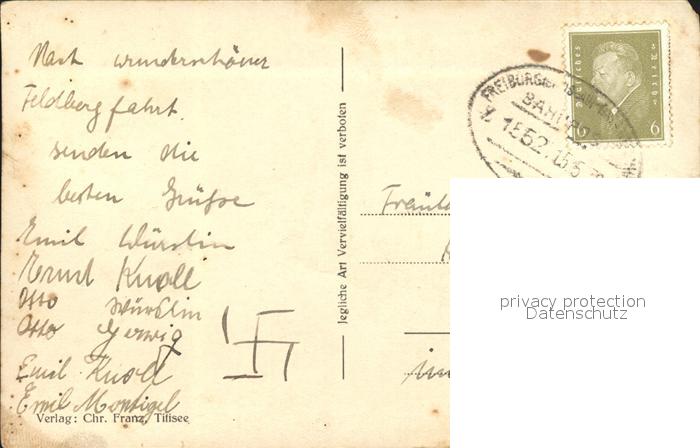 Nach wunderschöner
Feldbergfahrt
senden die
besten Grüsse
Emil Würslin
Ernst Knoll
Otto Würslin
Otto Gerwig
Emil Knoll
Emil Montigel
Verlag: Chr. Franz, Titisee
Jegliche Art Vervielfältigung ist verboten
FREIBURG
BAHNPOS
Z. 1552
Deutsches Reich
6 6
privacy protection
Datenschutz